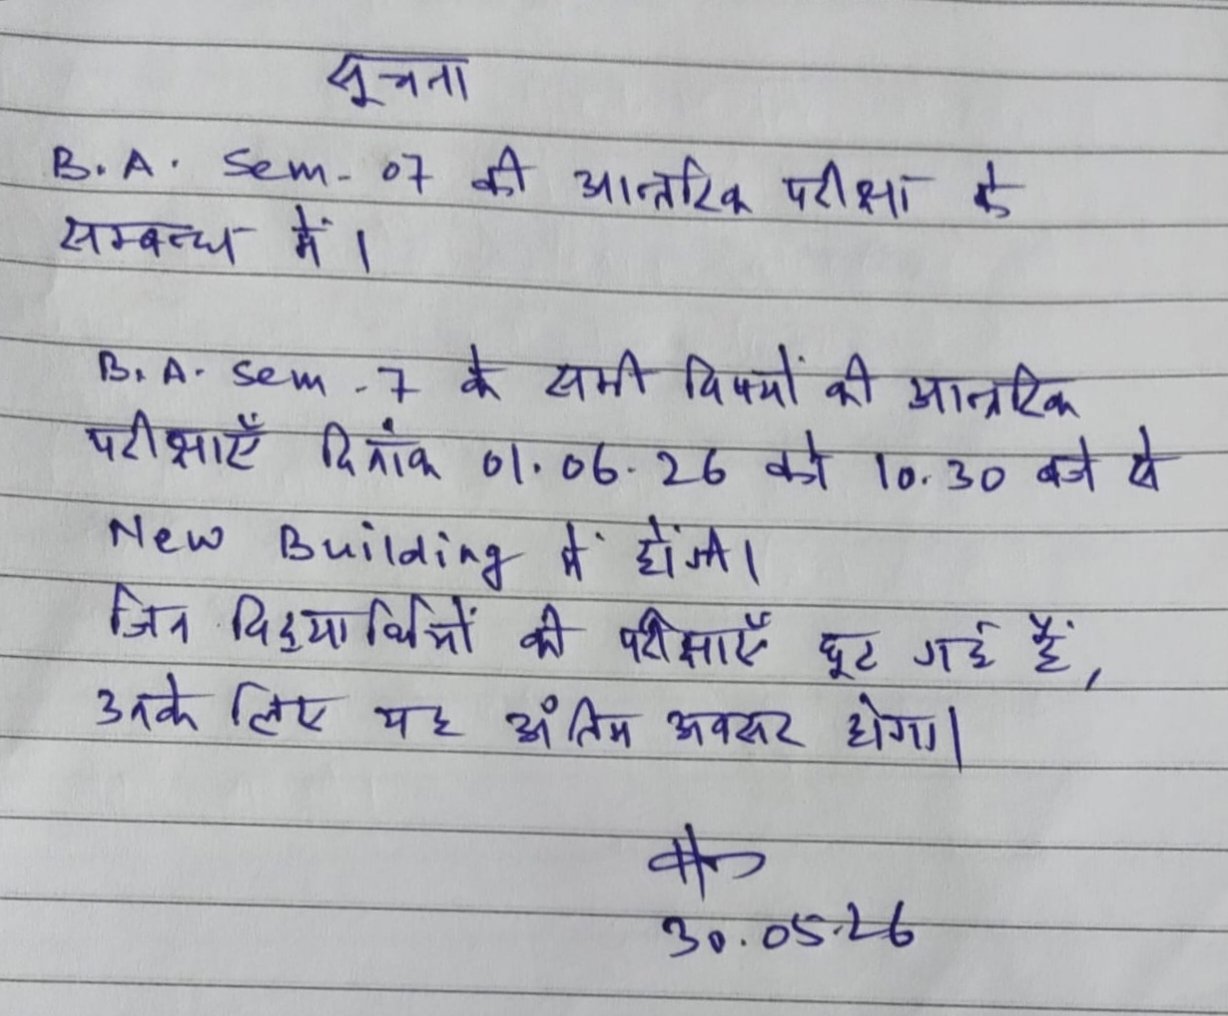 सूचना
B.A. Sem- 07 की आन्तरिक परीक्षा के
सम्बन्ध में।
B.A. Sem -7 के सभी विषयों की आन्तरिक
परीक्षाएँ दिनांक 01.06.26 को 10.30 बजे से
New Building में होंगी।
जिन विद्यार्थियों की परीक्षाएँ छूट गई हैं,
उनके लिए यह अंतिम अवसर होगा।
30.05.26